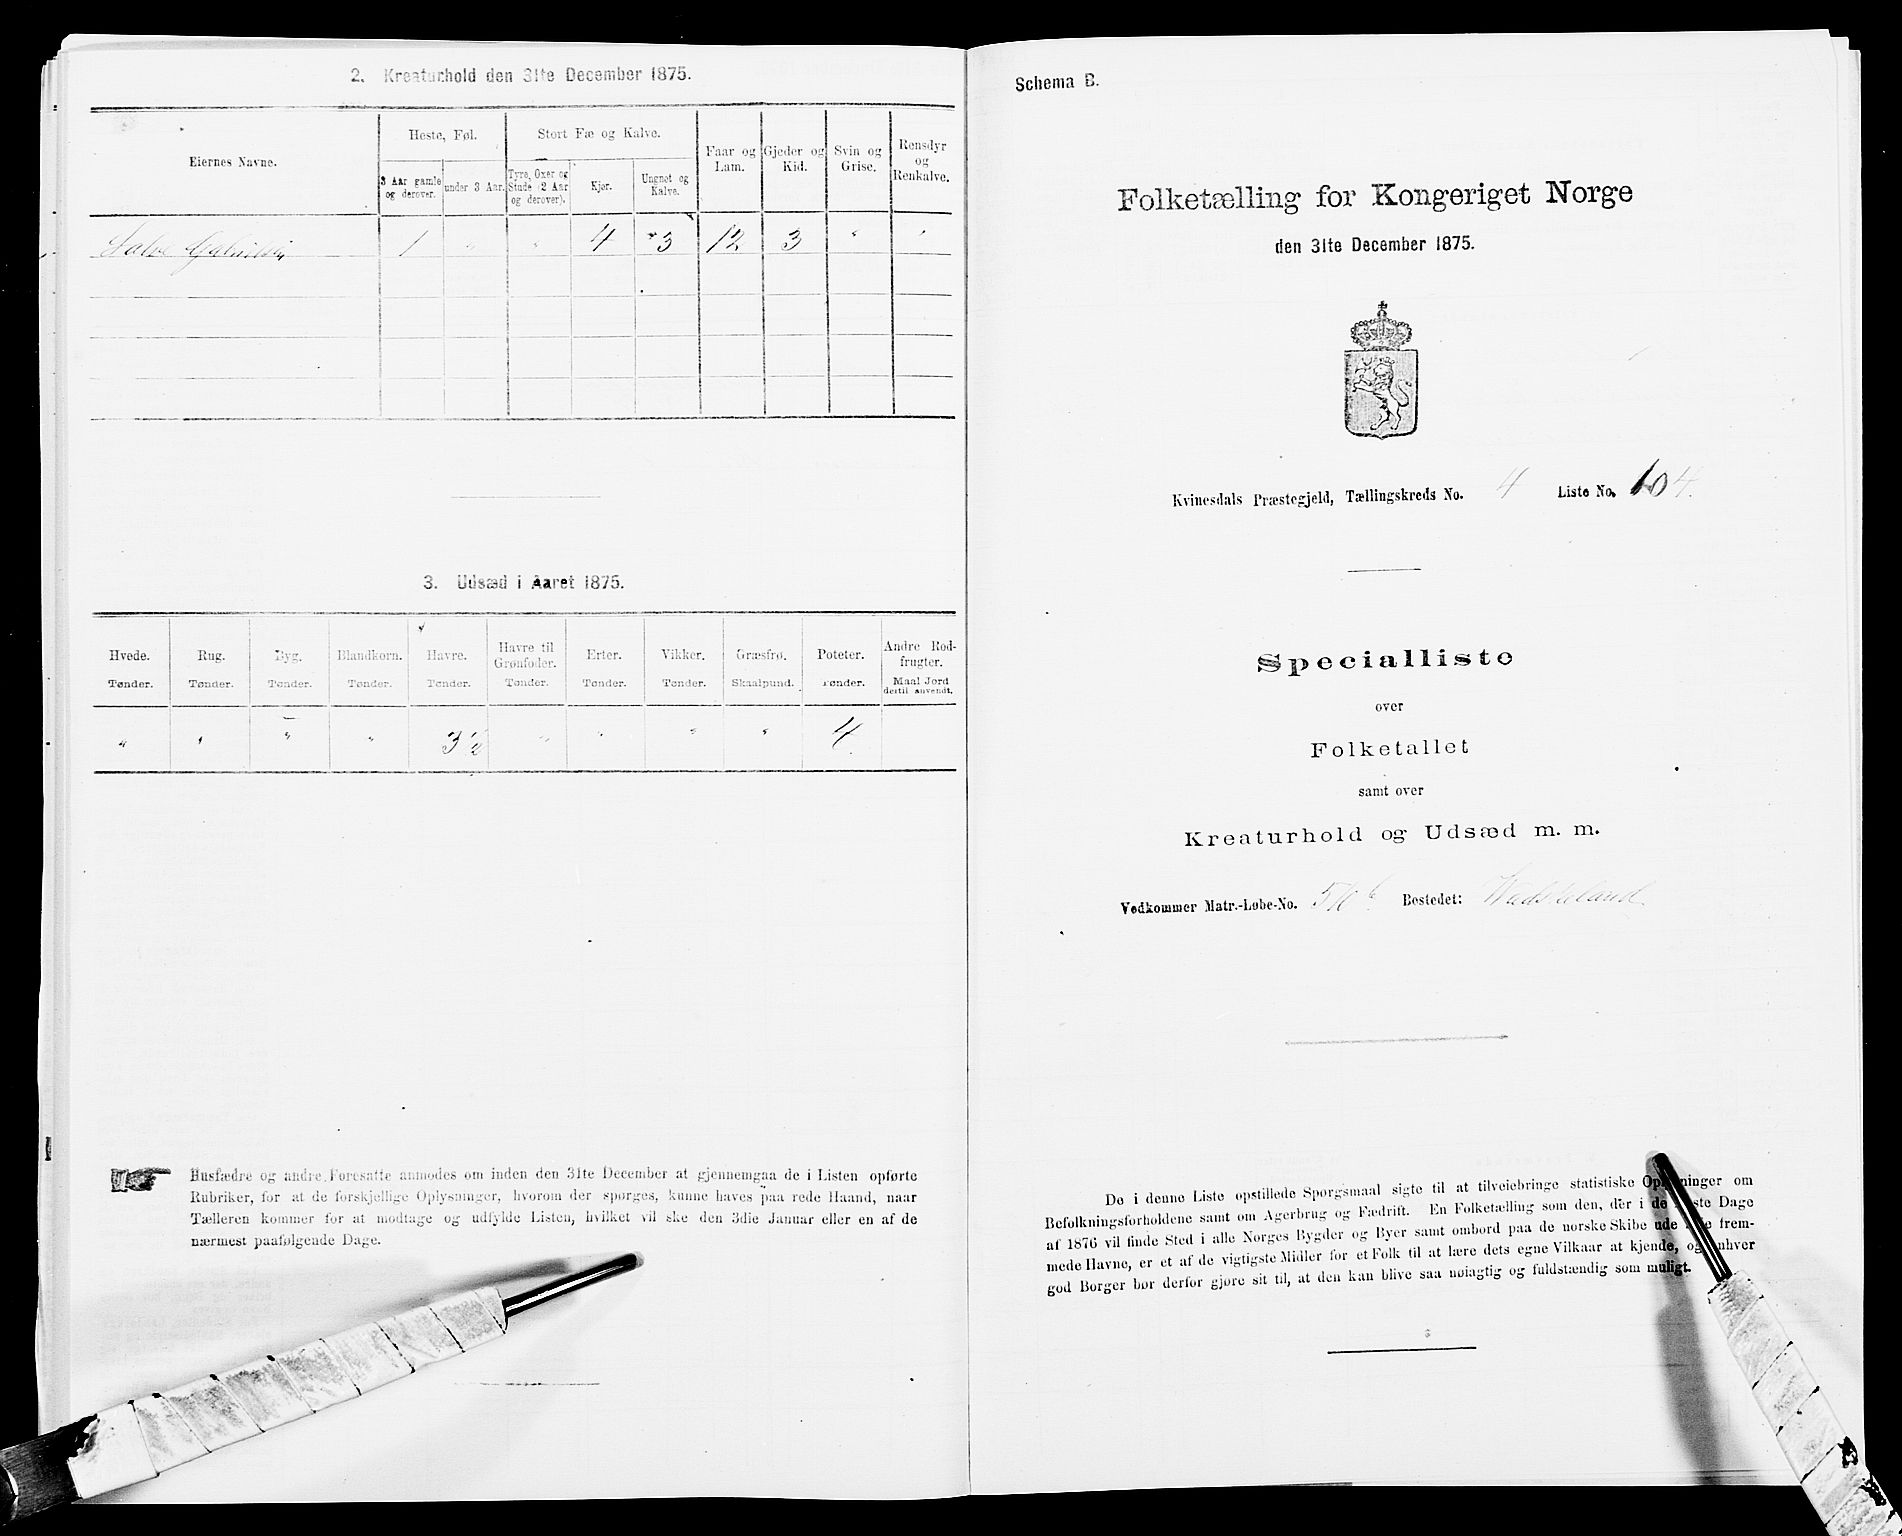 2. Kreaturhold den 31te December 1875.
Eiernes Navne.
Heste, Føl.
Stort Fæ og Kalve.
Faar og Lam.
Gjeder og Kid.
Svin og Grise.
Rensdyr og Renkalve.
3 Aar gamle og derover.
under 3 Aar.
Tyre, Oxer og Stude (2 Aar og derover).
Kjør.
Ungnøt og Kalve.
Salve Gabrielsen 1 " " 4 3 12 3 " "
3. Udsæd i Aaret 1875.
Hvede. Rug. Byg. Blandkorn. Havre. Havre til Grønfoder. Erter. Vikker. Græsfrø. Poteter. Andre Rodfrugter.
Tønder. Tønder. Tønder. Tønder. Tønder. Tønder. Tønder. Tønder. Skaalpund. Tønder. Maal Jord dertil anvendt.
" " " " 3 1/2 " " " " 4.
Husfædre og andre Foresatte anmodes om inden den 31te December at gjennemgaa de i Listen opførte
Rubriker, for at de forskjellige Oplysninger, hvorom der spørges, kunne haves paa rede Haand, naar
Tælleren kommer for at modtage og udfylde Listen, hvilket vil ske den 3die Januar eller en af de
nærmest paafølgende Dage.
Schema B.
Folketælling for Kongeriget Norge
den 31te December 1875.
Kvinesdals Præstegjeld, Tællingskreds No. 4 Liste No. 104.
Specialliste
over
Folketallet
samt over
Kreaturhold og Udsæd m. m.
Vedkommer Matr.-Løbe-No. Bestedet:
De i denne Liste opstillede Spørgsmaal sigte til at tilveiebringe statistiske Oplysninger om
Befolkningsforholdene samt om Agerbrug og Fædrift. En Folketælling som den, der i de første Dage
af 1876 vil finde Sted i alle Norges Bygder og Byer samt ombord paa de norske Skibe ude i de frem-
mede Havne, er et af de vigtigste Midler for et Folk til at lære dets egne Vilkaar at kjende, og enhver
god Borger bør derfor gjøre sit til, at den kan blive saa nøiagtig og fuldstændig som muligt.